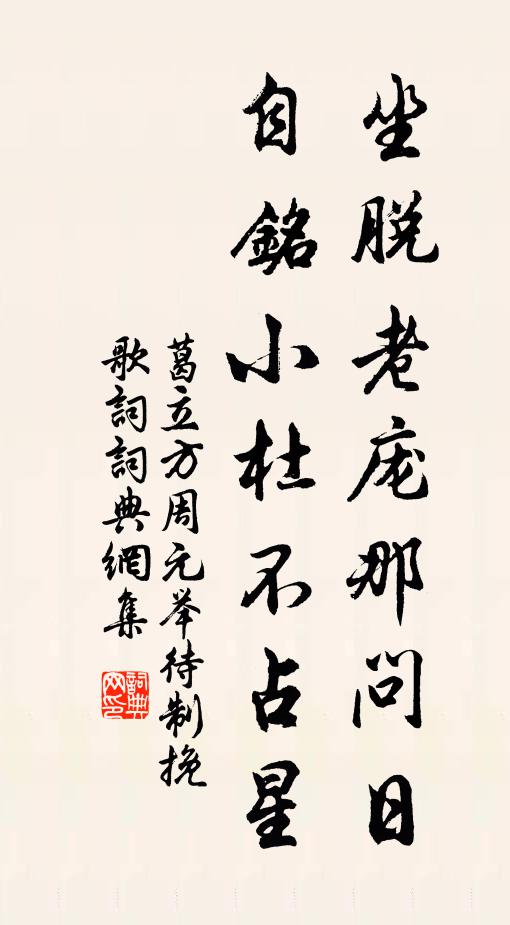 坐脱老庞那问日
自銘小杜不占星
葛立方周元举待制挽
歌詞詞典網集
詞典网印